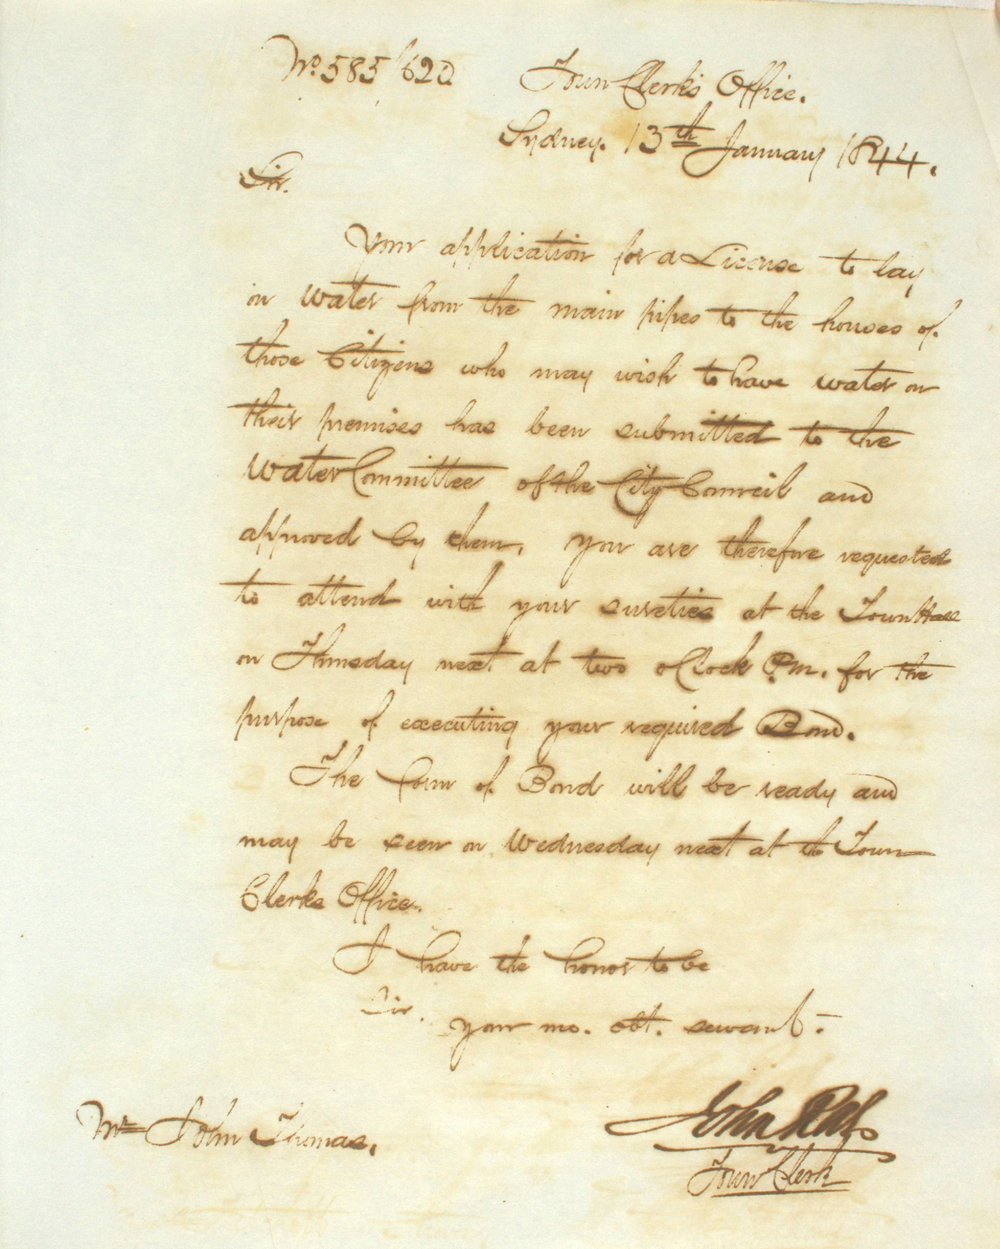 No. 585/620
Town Clerk's Office.
Sydney. 13th January 1844.
Sir.
Your application for a License to lay
on Water from the main pipes to the houses of
those Citizens who may wish to have water on
their premises has been submitted to the
Water Committee of the City Council and
approved by them, you are therefore requested
to attend with your sureties at the Town Hall
on Thursday next at two oClock P.M. for the
purpose of executing your required Bond.
The form of Bond will be ready and
may be seen on Wednesday next at the Town
Clerks Office.
I have the honor to be
Sir.
your mo. obt. servant.
John Rae
Town Clerk
Mr John Thomas.